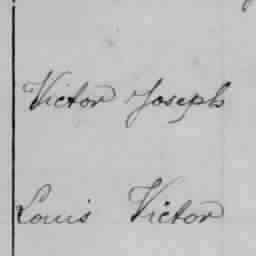 Victor Joseph
Louis Victor